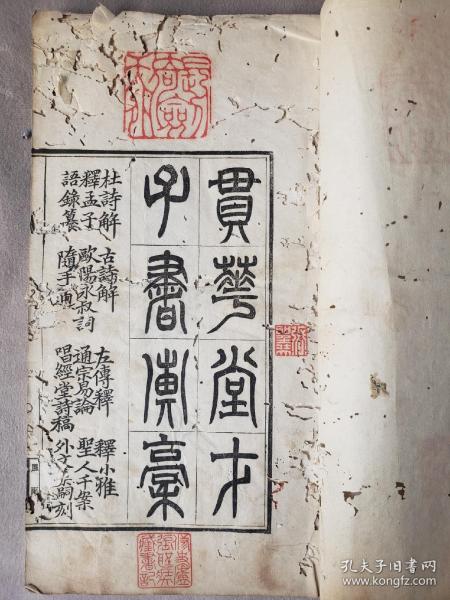 貫華堂才
子書彙稾
杜詩解 古詩解 左傳釋 釋小雅
釋孟子 歐陽永叔詞 通宗易論 聖人千案
語錄纂 隨手通 唱經堂詩稿 外嗣刻
孔夫子旧书网